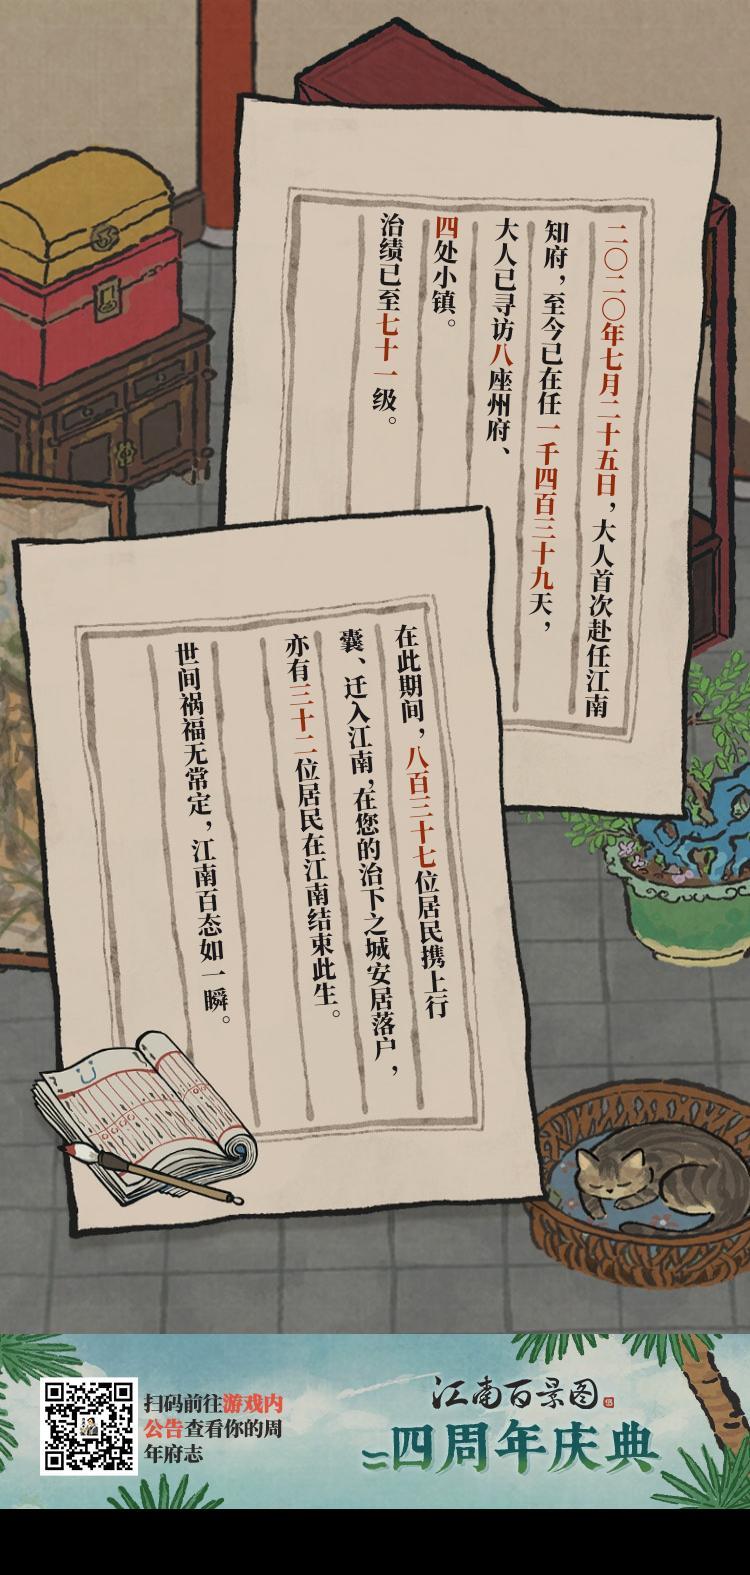 二〇二〇年七月二十五日，大人首次赴任江南
知府，至今已在任一千四百三十九天，
大人已寻访八座州府、
四处小镇。
治绩已至七十一级。
在此期间，八百三十七位居民携上行
囊、迁入江南，在您的治下之城安居落户，
亦有三十二位居民在江南结束此生。
世间祸福无常定，江南百态如一瞬。
扫码前往游戏内
公告查看你的周
年府志
江南百景图
四周年庆典